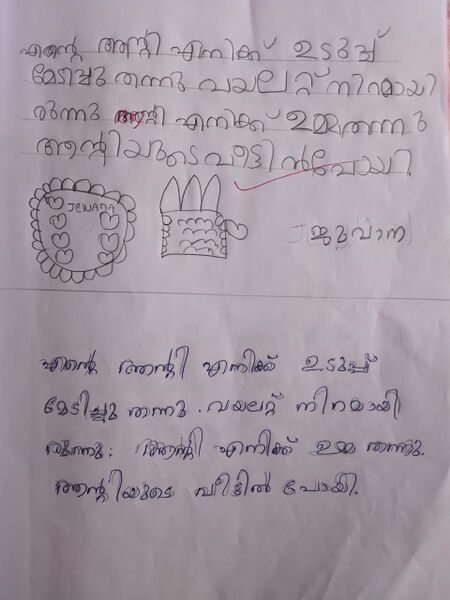 എന്റെ ആന്റി എനിക്ക് ഉടുപ്പ്
മേടിച്ചു തന്നു വയലറ്റ് നിറമായി
രുന്നു ആന്റി എനിക്ക് ഉമ്മതന്നു
ആന്റിയുടെ വീട്ടിൽ പോയി.
JEWANA
ജുവാന
എന്റെ ആന്റി എനിക്ക് ഉടുപ്പ്
മേടിച്ചു തന്നു. വയലറ്റ് നിറമായി
രുന്നു. ആന്റി എനിക്ക് ഉമ്മ തന്നു.
ആന്റിയുടെ വീട്ടിൽ പോയി.